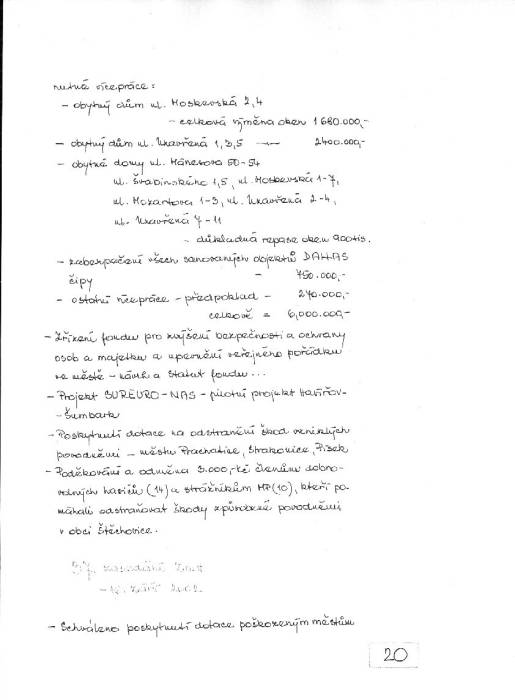 nutné vícepráce:
- obytný dům ul. Moskevská 2,4
- celková výměna oken 1 680.000,-
- obytný dům ul. Uzavřená 1,3,5 —— 2400.000,-
- obytné domy ul. Mánesova 50-54
ul. Švabinského 1,5, ul. Moskevská 1-7,
ul. Mozartova 1-3, ul. Uzavřená 2-4,
ul. Uzavřená 7-11
- důkladná repase oken 900tis.
- zabezpečení všech sanovaných objektů DALLAS
čipy - 750.000,-
- ostatní vícepráce - předpoklad - 270.000,-
celkově = 6,000.000,-
- Zřízení fondu pro zvýšení bezpečnosti a ochrany
osob a majetku a upevnění veřejného pořádku
ve městě - návrh a Statut fondu...
- Projekt SUREURO-NAS - pilotní projekt Havířov-
-Šumbark
- Poskytnutí dotace na odstranění škod vzniklých
povodněmi - městu Prachatice, Strakonice, Písek
- Poděkování a odměna 3.000,-kč členům dobro-
volných hasičů (14) a strážníkům MP (10), kteří po-
máhali odstraňovat škody způsobené povodněmi
v obci Štěchovice.
37. zasedání
září 2002
- Schváleno poskytnutí dotace poškozeným městům
20